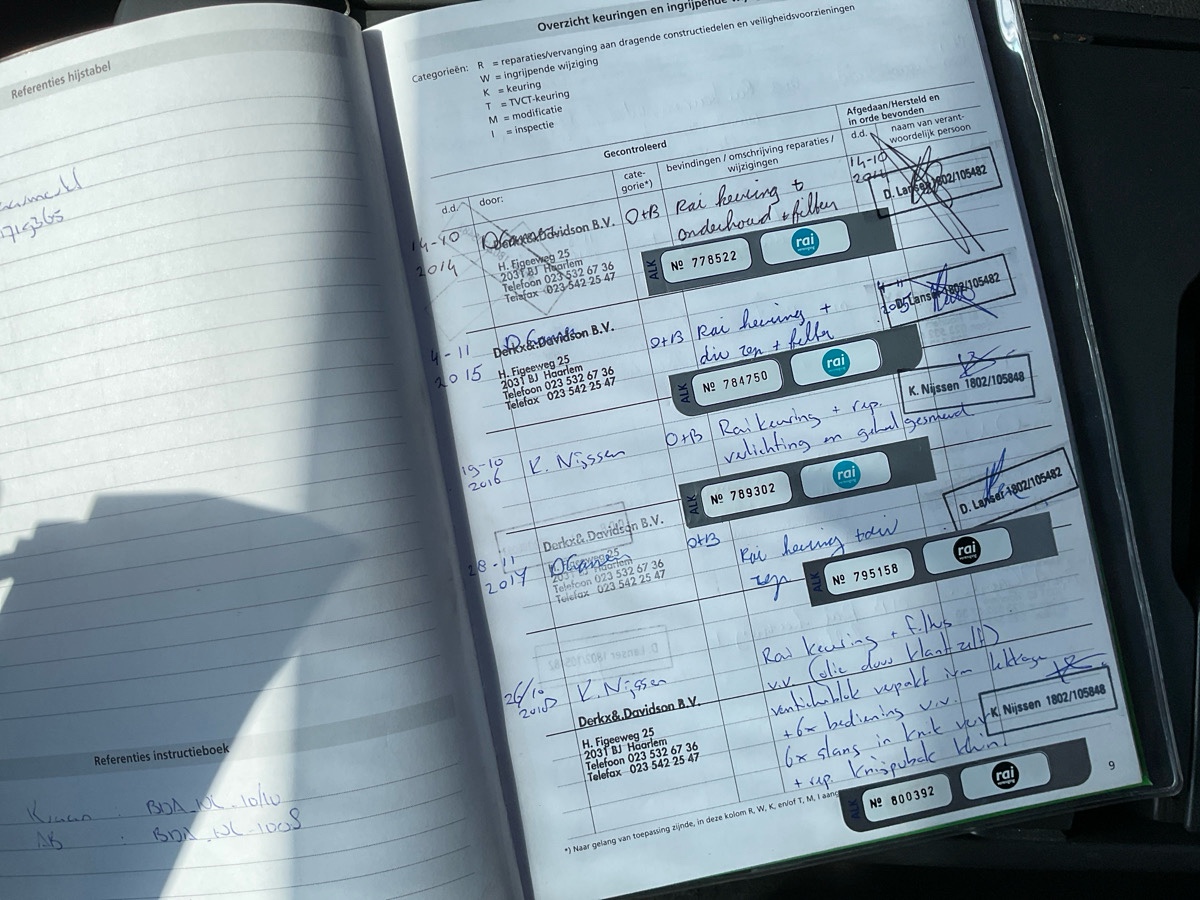 Referenties hijstabel
Referenties instructieboek
Kraan : BDA_NL_10/10
AB : BDA_NL_1008
Overzicht keuringen en ingrijpende
Categorieën: R = reparaties/vervanging aan dragende constructiedelen en veiligheidsvoorzieningen
W = ingrijpende wijziging
K = keuring
T = TVCT-keuring
M = modificatie
I = inspectie
Gecontroleerd
Afgedaan/Hersteld en
in orde bevonden
d.d.
door:
cate-
gorie*)
bevindingen / omschrijving reparaties /
wijzigingen
d.d.
naam van verant-
woordelijk persoon
14-10
2014
Derkx&Davidson B.V.
H. Figeeweg 25
2031 BJ Haarlem
Telefoon 023 532 67 36
Telefax 023 542 25 47
O+B
Rai keuring +
onderhoud + filters
14-10
2014
D. Lanser 1802/105482
ALK Nº 778522 rai
4-11
2015
Derkx&Davidson B.V.
H. Figeeweg 25
2031 BJ Haarlem
Telefoon 023 532 67 36
Telefax 023 542 25 47
O+B
Rai keuring +
div rep + filter
4-11
2015
D. Lanser 1802/105482
ALK Nº 784750 rai
19-10
2016
K. Nijssen
O+B
Rai keuring + rep.
verlichting en geheel gesmeerd
K. Nijssen 1802/105848
ALK Nº 789302 rai
28-11
2017
Derkx&Davidson B.V.
2031 BJ Haarlem
Telefoon 023 532 67 36
Telefax 023 542 25 47
O+B
Rai keuring + div
rep
D. Lanser 1802/105482
ALK Nº 795158 rai
26/10
K. Nijssen
Derkx&Davidson B.V.
H. Figeeweg 25
2031 BJ Haarlem
Telefoon 023 532 67 36
Telefax 023 542 25 47
Rai keuring + filters
v.v. (olie door klant zelf)
ventielblok verpakt ivm lekkage
+ 6x bediening v.v.
6x slang in knik
+ rep. knijpbak
K. Nijssen 1802/105848
ALK Nº 800392 rai
*) Naar gelang van toepassing zijnde, in deze kolom R, W, K, en/of T, M, I
9